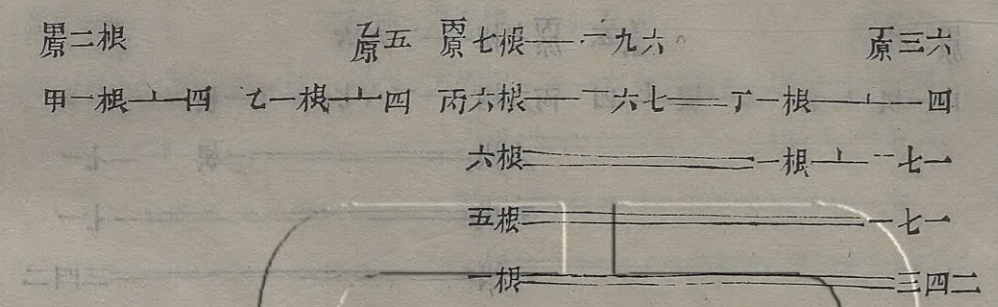 甲原二根 乙原五 丙原七根—一九六 丁原三六
甲一根⊥四 乙一根⊥四 丙六根—一六七＝丁一根⊥四
六根＝一根⊥一七一
五根＝一七一
一根＝三四二